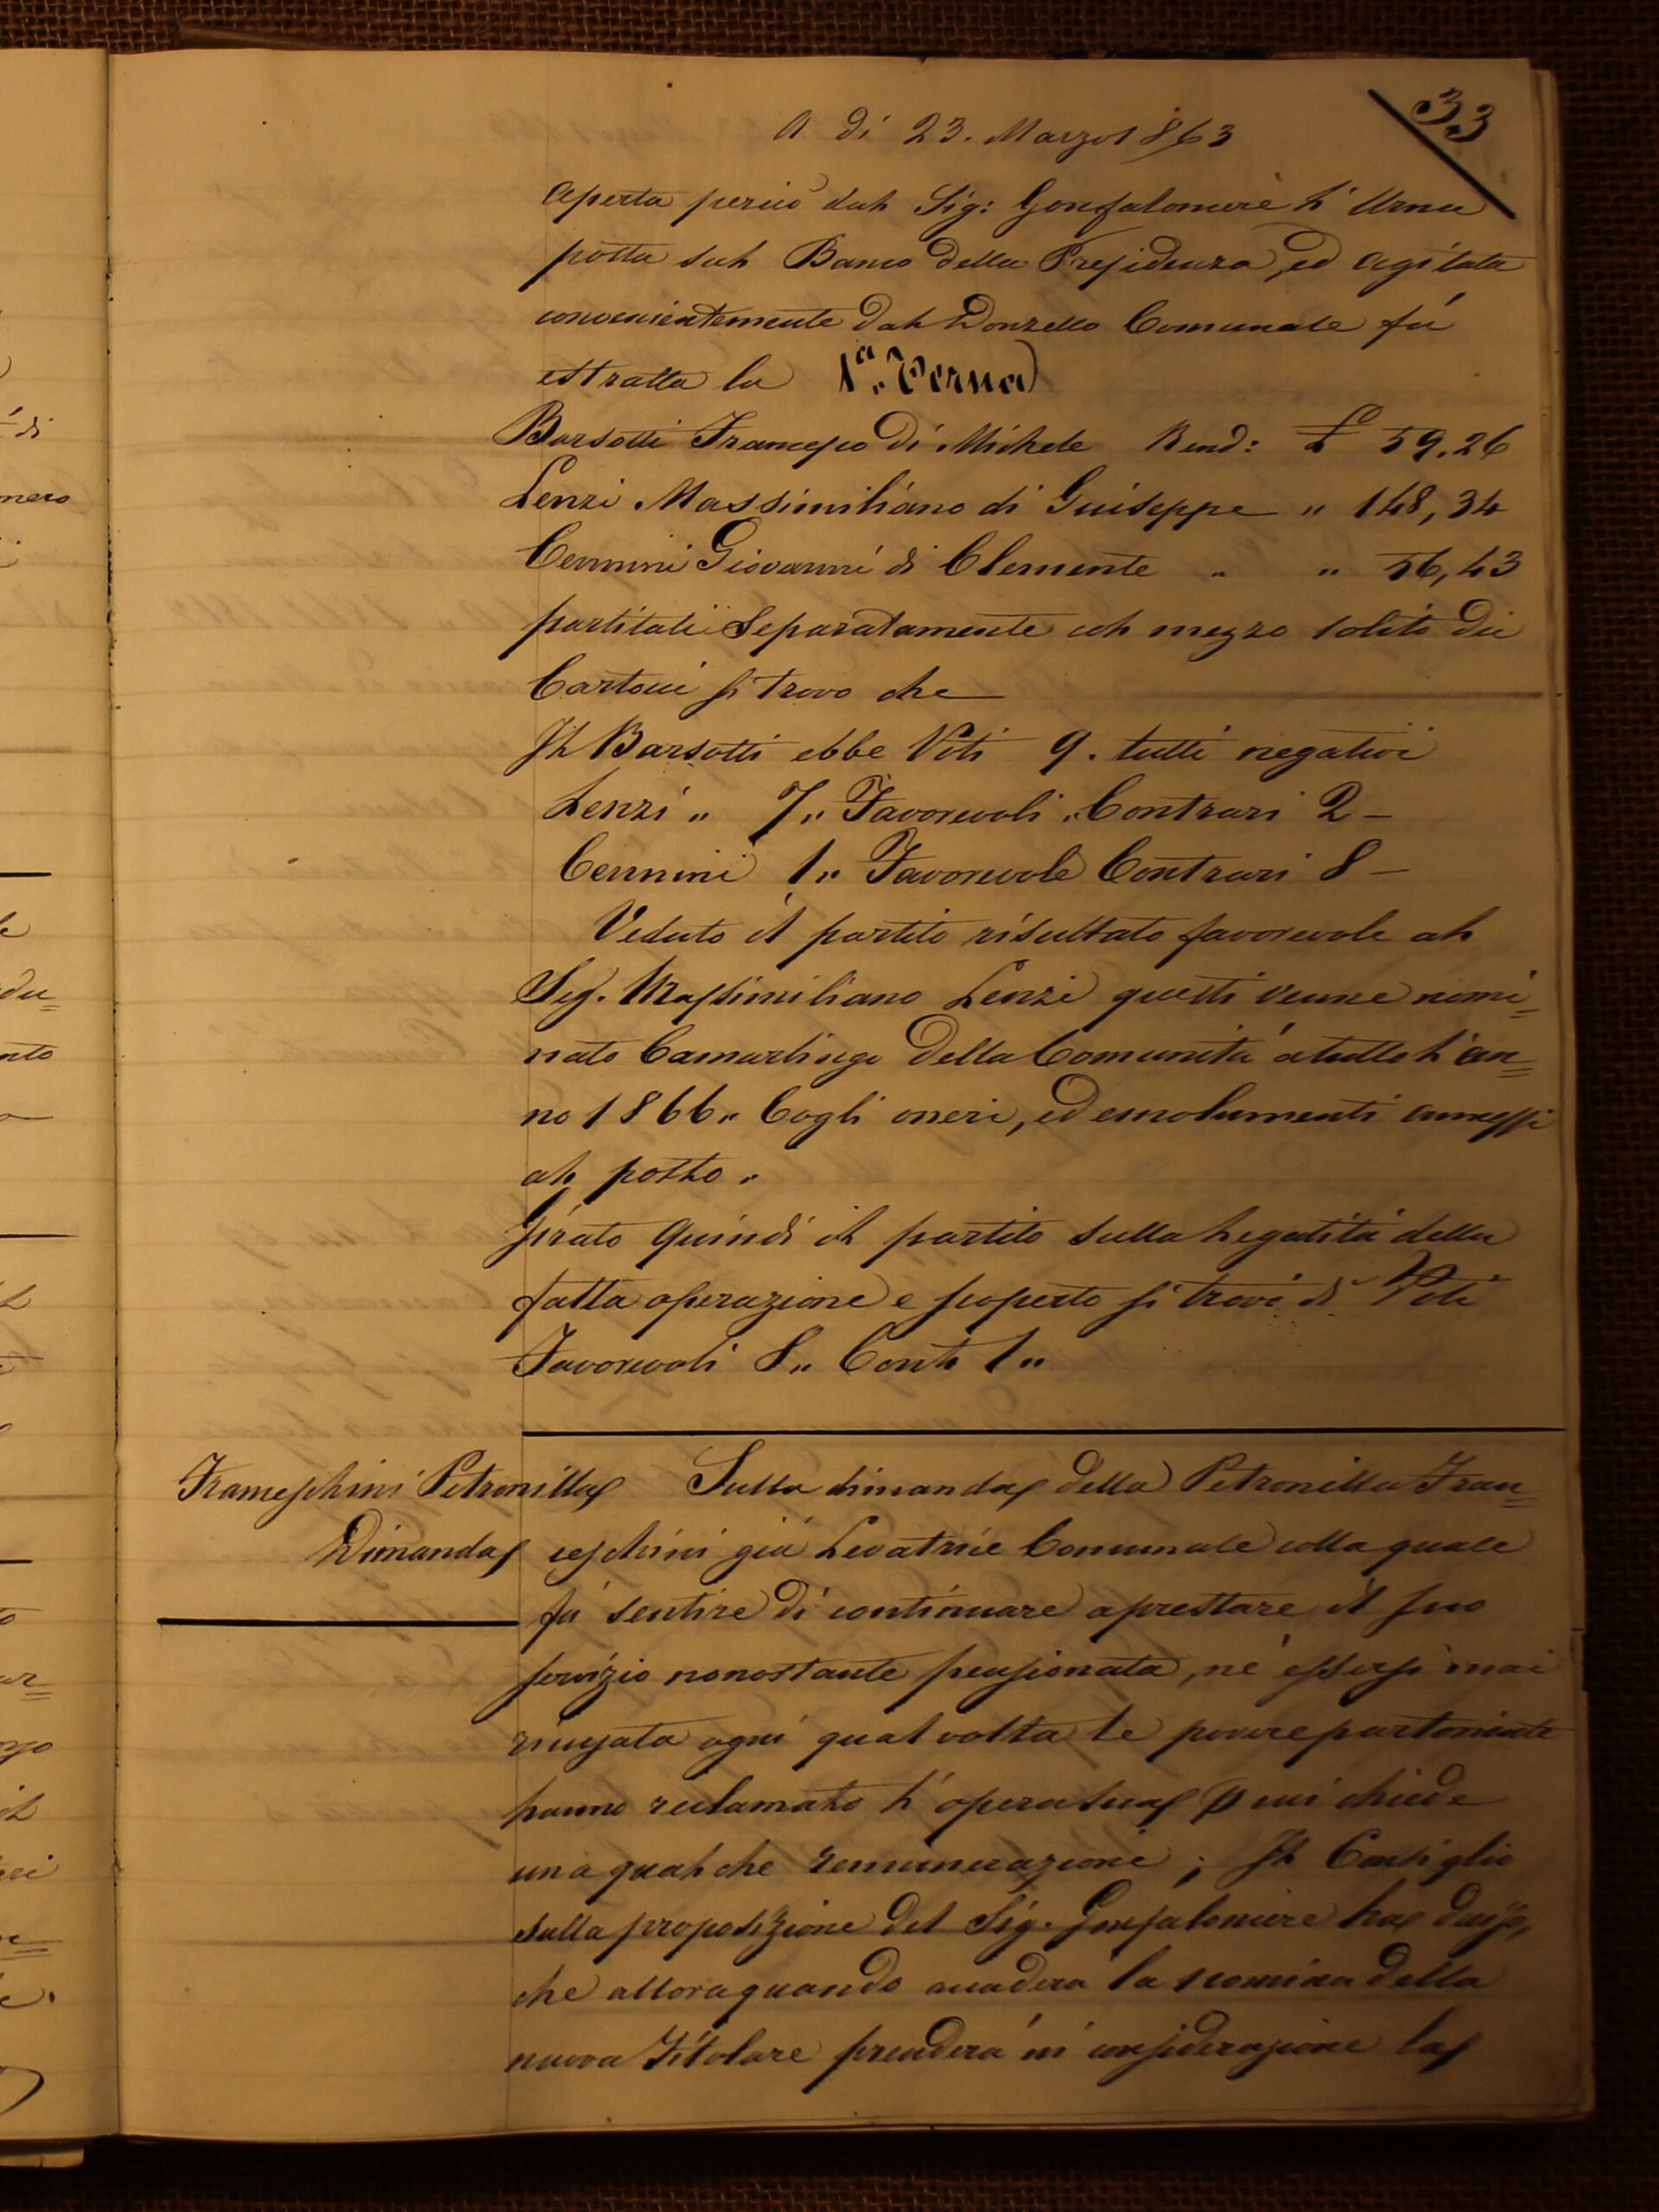 33
A di 23. Marzo 1863
Aperta perciò dal Sig: Gonfaloniere l'Urna
posta sul Banco della Presidenza, ed agitata
convenientemente dal Donzello Comunale fú
estratta la 1ª. Terna
Barsotti Francesco di Michele Rend: £ 59.26
Lenzi Massimiliano di Giuseppe " 148,34
Cennini Giovanni di Clemente " " 56,43
partitati separatamente col mezzo solito dei
Cartoni si trovo che
Il Barsotti ebbe Voti 9. tutti negativi
Lenzi " 7" Favorevoli " Contrari 2 -
Cennini 1" Favorevole Contrari 8 -
Veduto il partito risultato favorevole al
Sig. Massimiliano Lenzi questi venne nomi=
nato Camarlingo della Comunitá a tutto l'an=
no 1866" Cogli oneri, ed emolumenti annessi
al posto.
Girato quindi il partito sulla legalitá della
fatta operazione e scoperto si trovò di Voti
Favorevoli 8" Contr 1"
Franceschini Petronilla
Dimanda
Sulla dimanda della Petronilla Fran=
ceschini giá Levatrice Comunale colla quale
fá sentire di continuare a prestare il suo
servizio nonostante pensionata, né essersi mai
ricusata ogni qual volta le povere partorienti
hanno reclamato l'opera sua p cui chiede
una qualche remunerazione; Il Consiglio
sulla proposizione del Sig. Gonfaloniere ha deciso,
che allora quando accaderá la nomina della
nuova Titolare prenderá in considerazione la